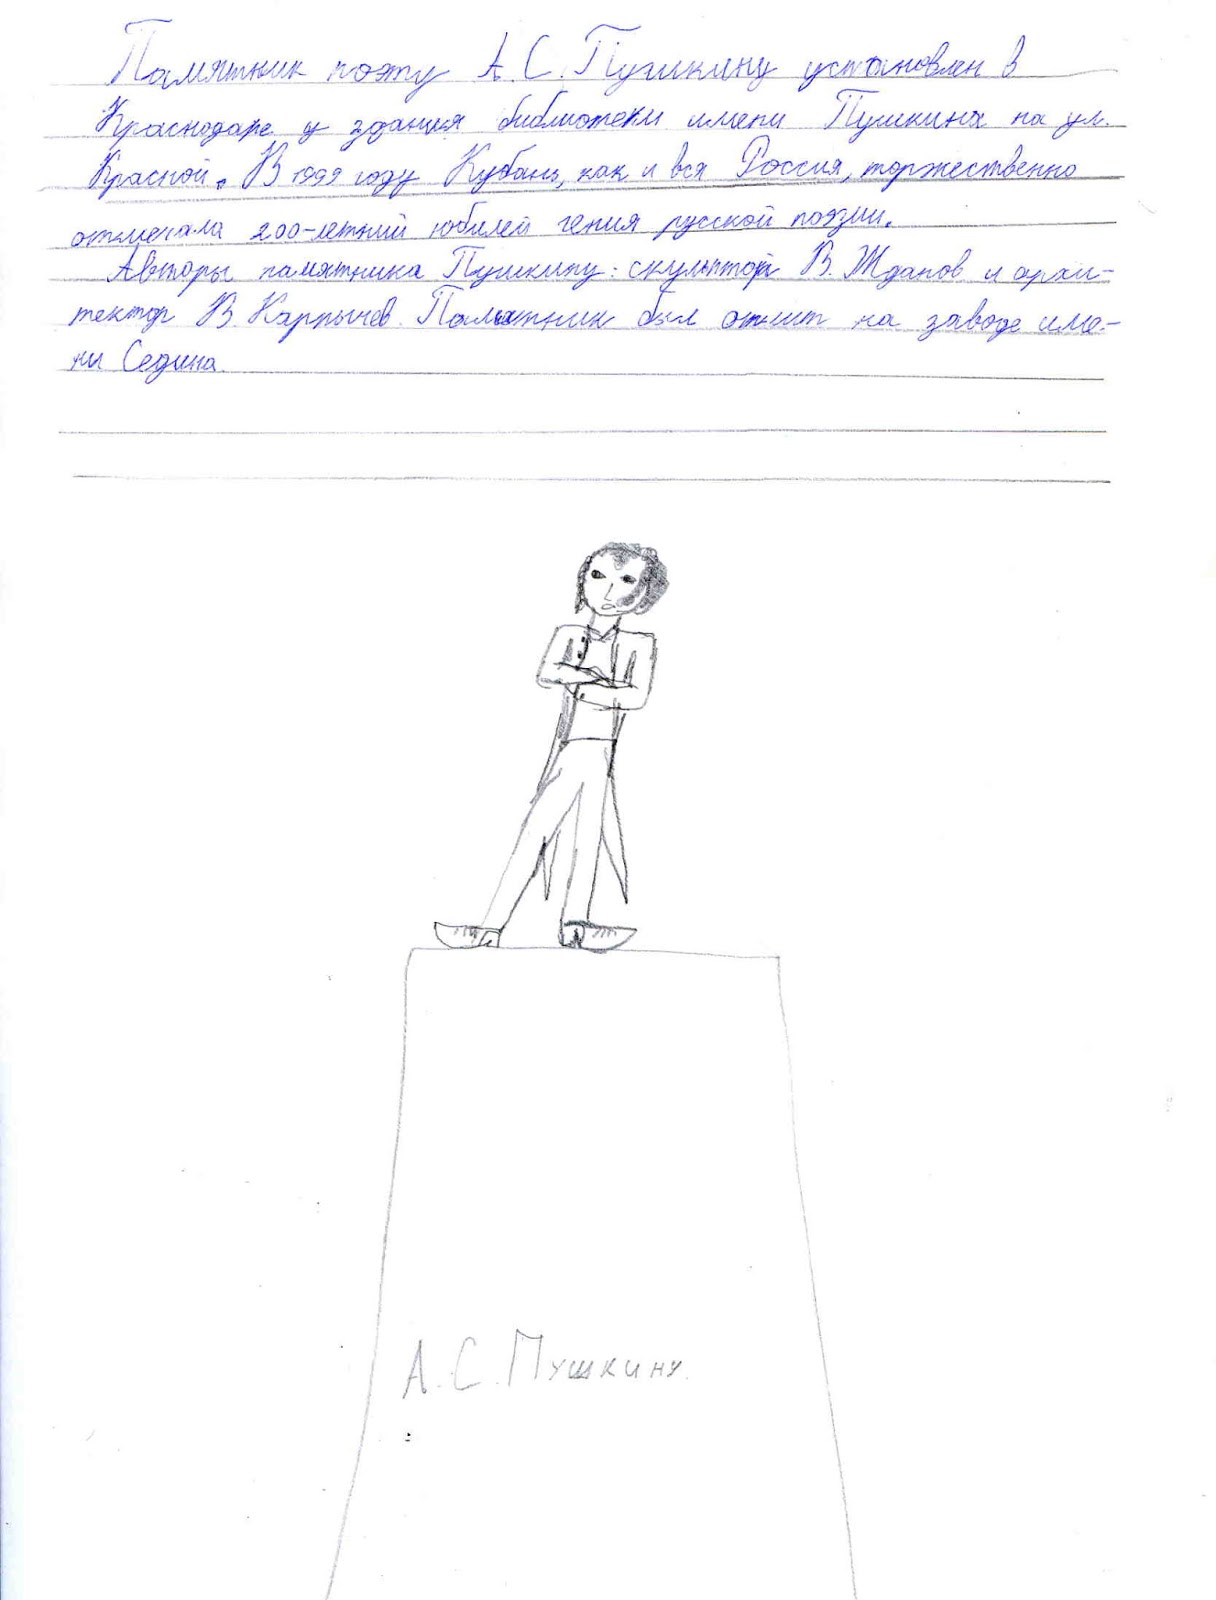 Памятник поэту А.С.Пушкину установлен в
Краснодаре у здания библиотеки имени Пушкина на ул.
Красной. В 1999 году Кубань, как и вся Россия, торжественно
отмечала 200-летний юбилей гения русской поэзии.
Авторы памятника Пушкину: скульптор В. Жданов и архи-
тектор В. Карпычев. Памятник был отлит на заводе име-
ни Седина.
А.С.Пушкину.